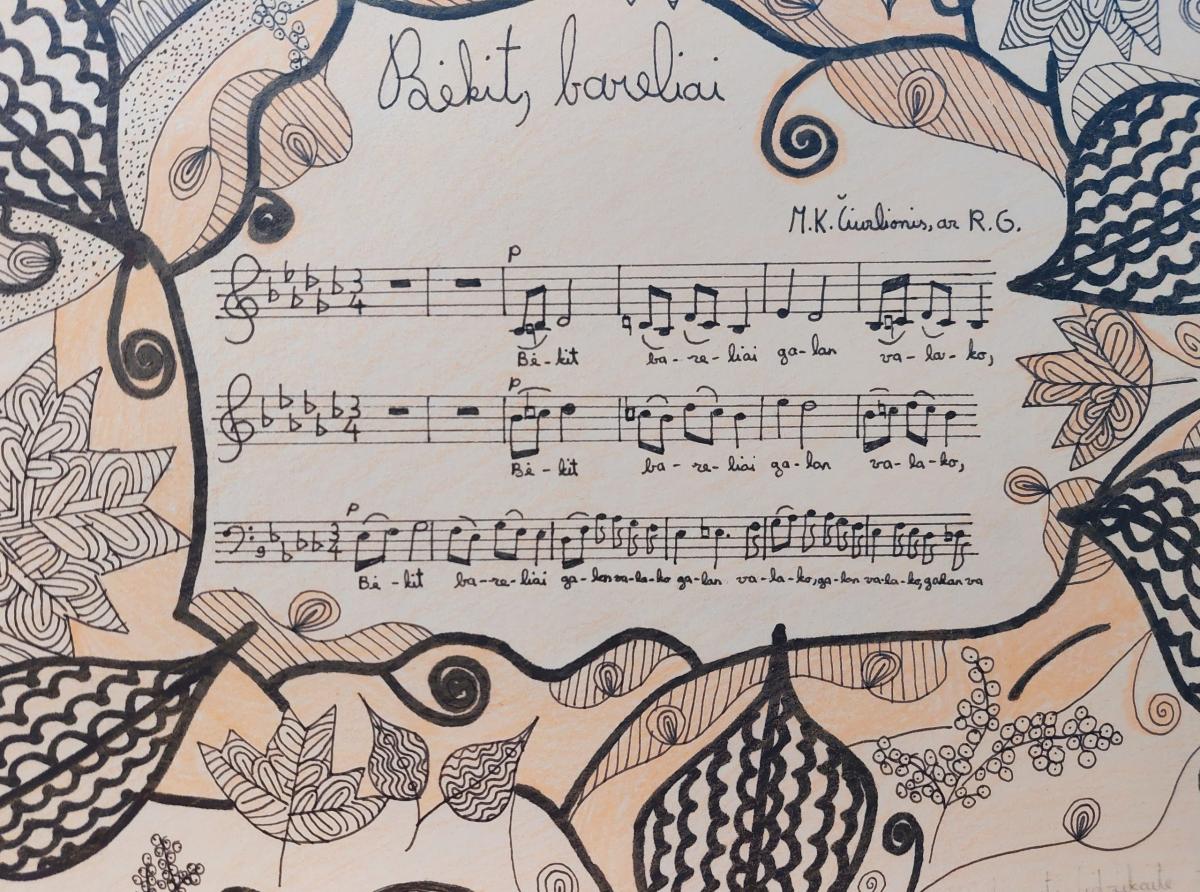 Bėkit, bareliai
M.K. Čiurlionis, ar R.G.
p
Bė-kit ba-re-liai ga-lan va-la-ko,
p
Bė-kit ba-re-liai ga-lan va-la-ko,
p
Bė-kit ba-re-liai ga-lan va-la-ko ga-lan va-la-ko, ga-lan va-la-ko, galan va